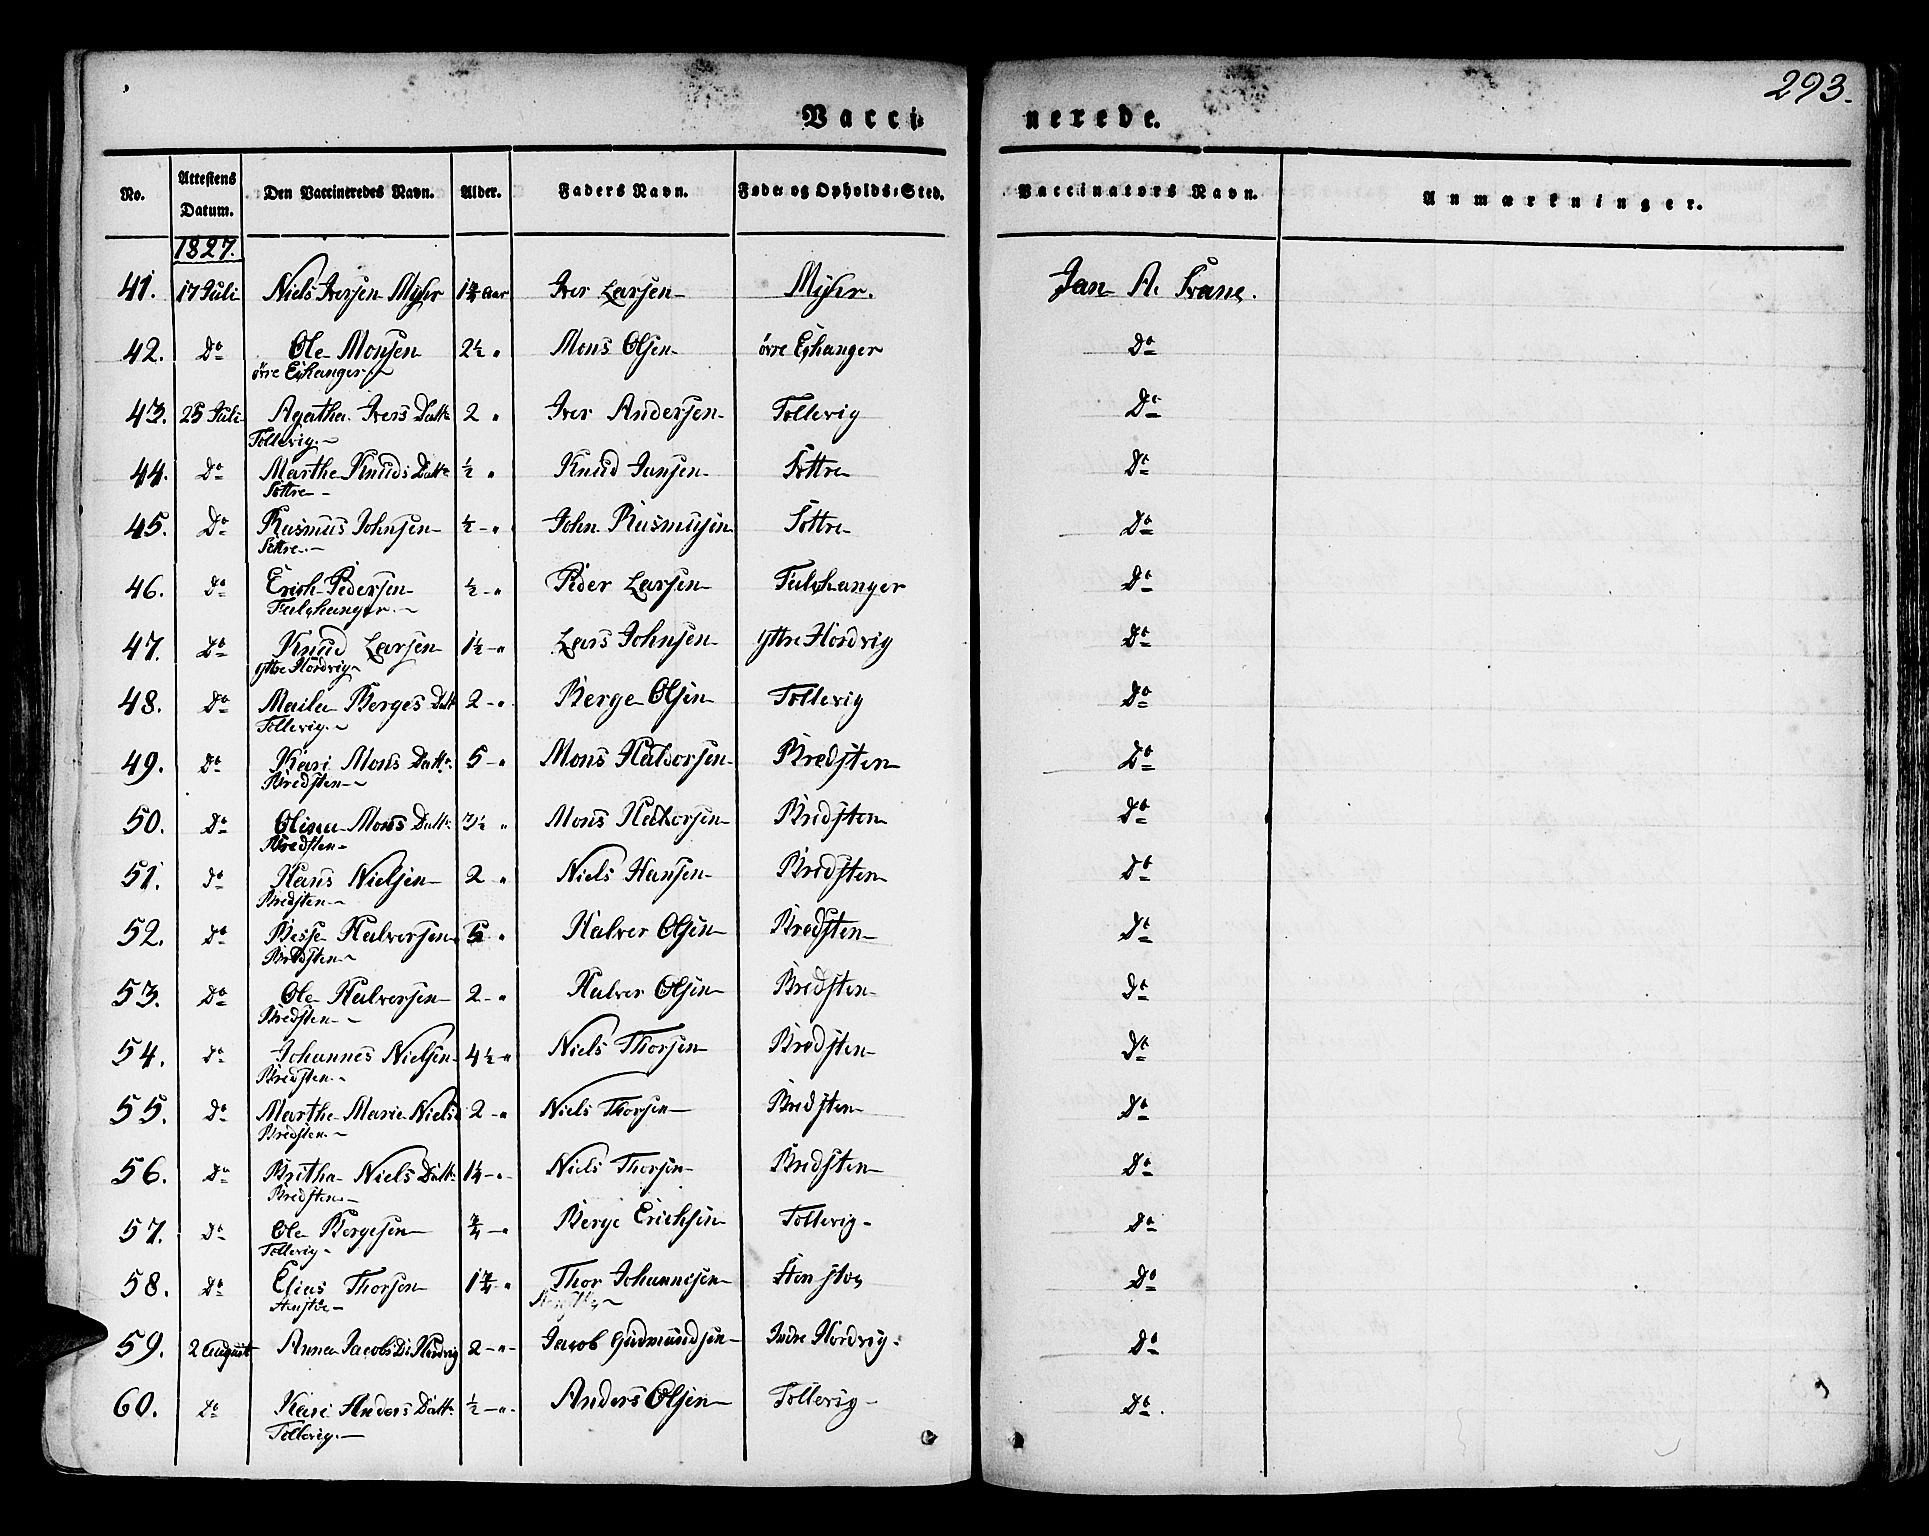 293.
Vacci- nerede.
No. Attestens Datum. Den Vaccineredes Navn. Alder. Faders Navn. Føde- og Opholds-Sted. Vaccinators Navn. Anmærkninger.
1827.
41. 17 Juli Niels Iversen Myhr Aar Iver Larsen Myhr. Jan A. Krane.
42. Do Ole Monsen 2½ " Mons Olsen øvre Eshanger Do
øvre Eshanger
43. 25 Juli Agatha Ivers Datt. 2 " Iver Andersen Tollevig Do
Tollevig.
44. Do Marthe Knuds Datt. ½ " Knud Jansen Tottre Do
Tottre
45. Do Rasmus Johnsen ½ " John Rasmusen Tottre Do
Tottre
46. Do Erich Pedersen ½ " Peder Larsen Falchanger Do
Falchanger.
47. Do Knud Larsen 1½ " Lars Johnsen yttre Hordvig Do
yttre Hordvig
48. Do Maila Berges Datt 2 " Berge Olsen Tollevig Do
Tollevig.
49. Do Kari Mons Datt. 5 " Mons Haldorsen Bredsten Do
Bredsten
50. Do Olina Mons Datt. 3½ " Mons Haldorsen Bredsten Do
Bredsten
51. Do Hans Nielsen 2 " Niels Hansen Bredsten Do
Bredsten
52. Do Besse Halversen 5 " Halver Olsen Bredsten Do
Bredsten
53. Do Ole Halversen 2 " Halver Olsen Bredsten Do
Bredsten
54. Do Johannes Nielsen 4½ " Niels Thorsen Bredsten Do
Bredsten
55. Do Marthe Marie Niels 2 " Niels Thorsen Bredsten Do
Bredsten.
56. Do Britha Niels Datt. 1¼ " Niels Thorsen Bredsten Do
Bredsten.
57. Do Ole Bergesen ¾ " Berge Erichsen Tollevig Do
Tollevig
58. Do Elias Thorsen 1¾ " Thor Johannesen Stenstøe Do
Stenstøe
59. 2 August Anna Jacobs D: Hordvig 2 " Jacob Gudmundsen Indre Hordvig Do
60. Do Kari Anders Datt. ½ " Anders Olsen Tollevig Do.
Tollevig.